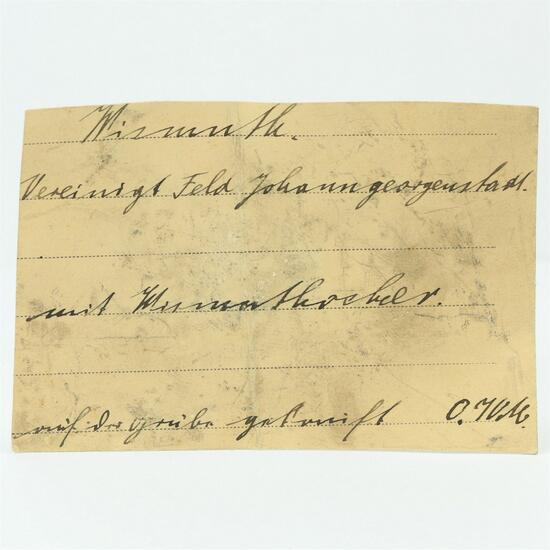 Wismuth.
Vereinigt Feld Johanngeorgenstadt.
mit Wismuthocker.
auf der Grube gekauft O.